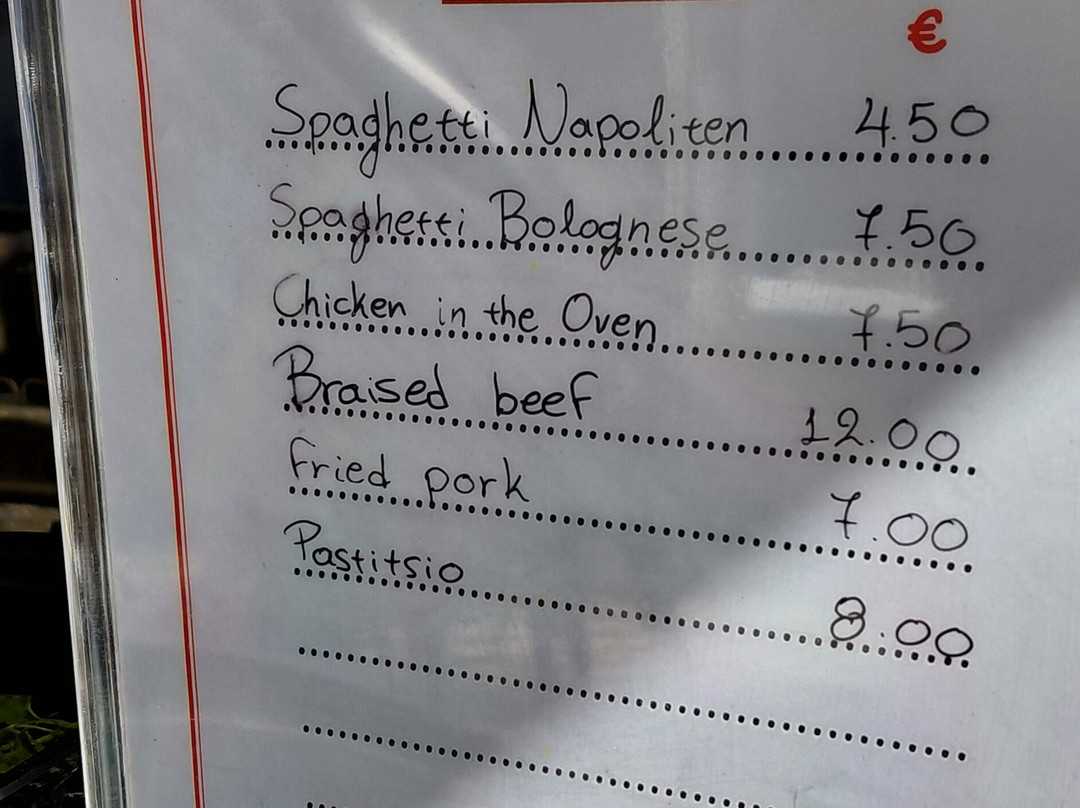 €
Spaghetti Napoliten 4.50
Spaghetti Bolognese 7.50
Chicken in the Oven 7.50
Braised beef 12.00
Fried pork 7.00
Pastitsio 8.00